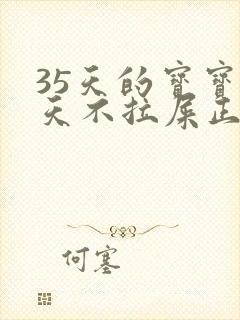 35天的宝宝
天不拉屎正
何塞